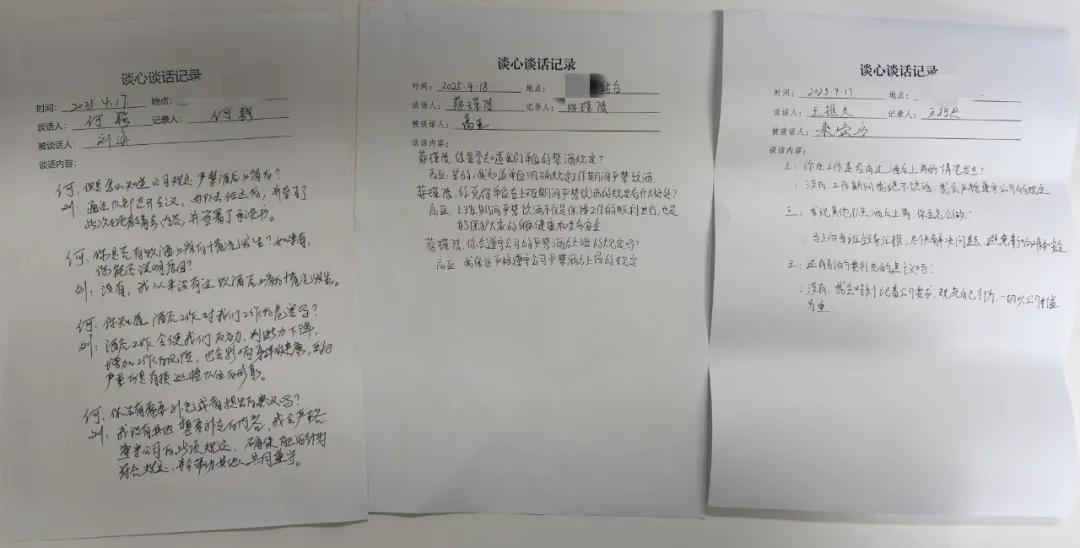 谈心谈话记录
时间： 2025.4.17 地点：
谈话人： 何骁 记录人： 何骁
被谈话人： 刘海
谈话内容：
何：你是怎么知道公司规定严禁酒后上岗的？
刘：通过队部召开会议，
此次
何：你是否有饮酒上岗的情况发生？如果有，
你能否说明原因？
刘：没有，我从来没有过饮酒后上岗的情况发生。
何：你知道酒后工作对我们工作的危害吗？
刘：酒后工作会使我们反应力、判断力下降，
增加工作的风险，也会影响
严重的是有损 队伍的形象。
何：你还有需要补充或者提出的建议吗？
刘：我没有其他想要补充的内容，我会严格
遵守公司的此项规定，确保自己的行为
符合规定，并会带动其他人共同遵守。
谈心谈话记录
时间： 2025.4.18 地点：
谈话人： 蔡瑾陵 记录人： 蔡瑾陵
被谈话人： 高亚
谈话内容：
蔡瑾陵：你是否知道我们单位的禁酒规定？
高亚：是的，我知道单位明确规定工作期间严禁饮酒。
蔡瑾陵：你觉得单位在上班期间严禁饮酒的规定有什么好处？
高亚：上班期间严禁饮酒不仅是保障工作的顺利进行，也是
为了保护大家的健康和生命安全。
蔡瑾陵：你会遵守公司的严禁酒后上班的规定吗？
高亚：我保证严格遵守公司严禁酒后上岗的规定
谈心谈话记录
时间： 2025.4.17 地点：
谈话人： 王 记录人： 王
被谈话人：
谈话内容：
王：你在工作是否有过酒后上岗的情况发生？
：没有，工作期间我绝不饮酒，我会严格遵守公司的规定
王：发现其他队员酒后上岗，你会怎么做？
：马上向当班领导汇报，尽快解决问题，避免影响工作和安全
王：还有别的要补充的建议吗？
：没有，我会时刻记着公司要求，规范自己行为，一切以公司利益
为重.